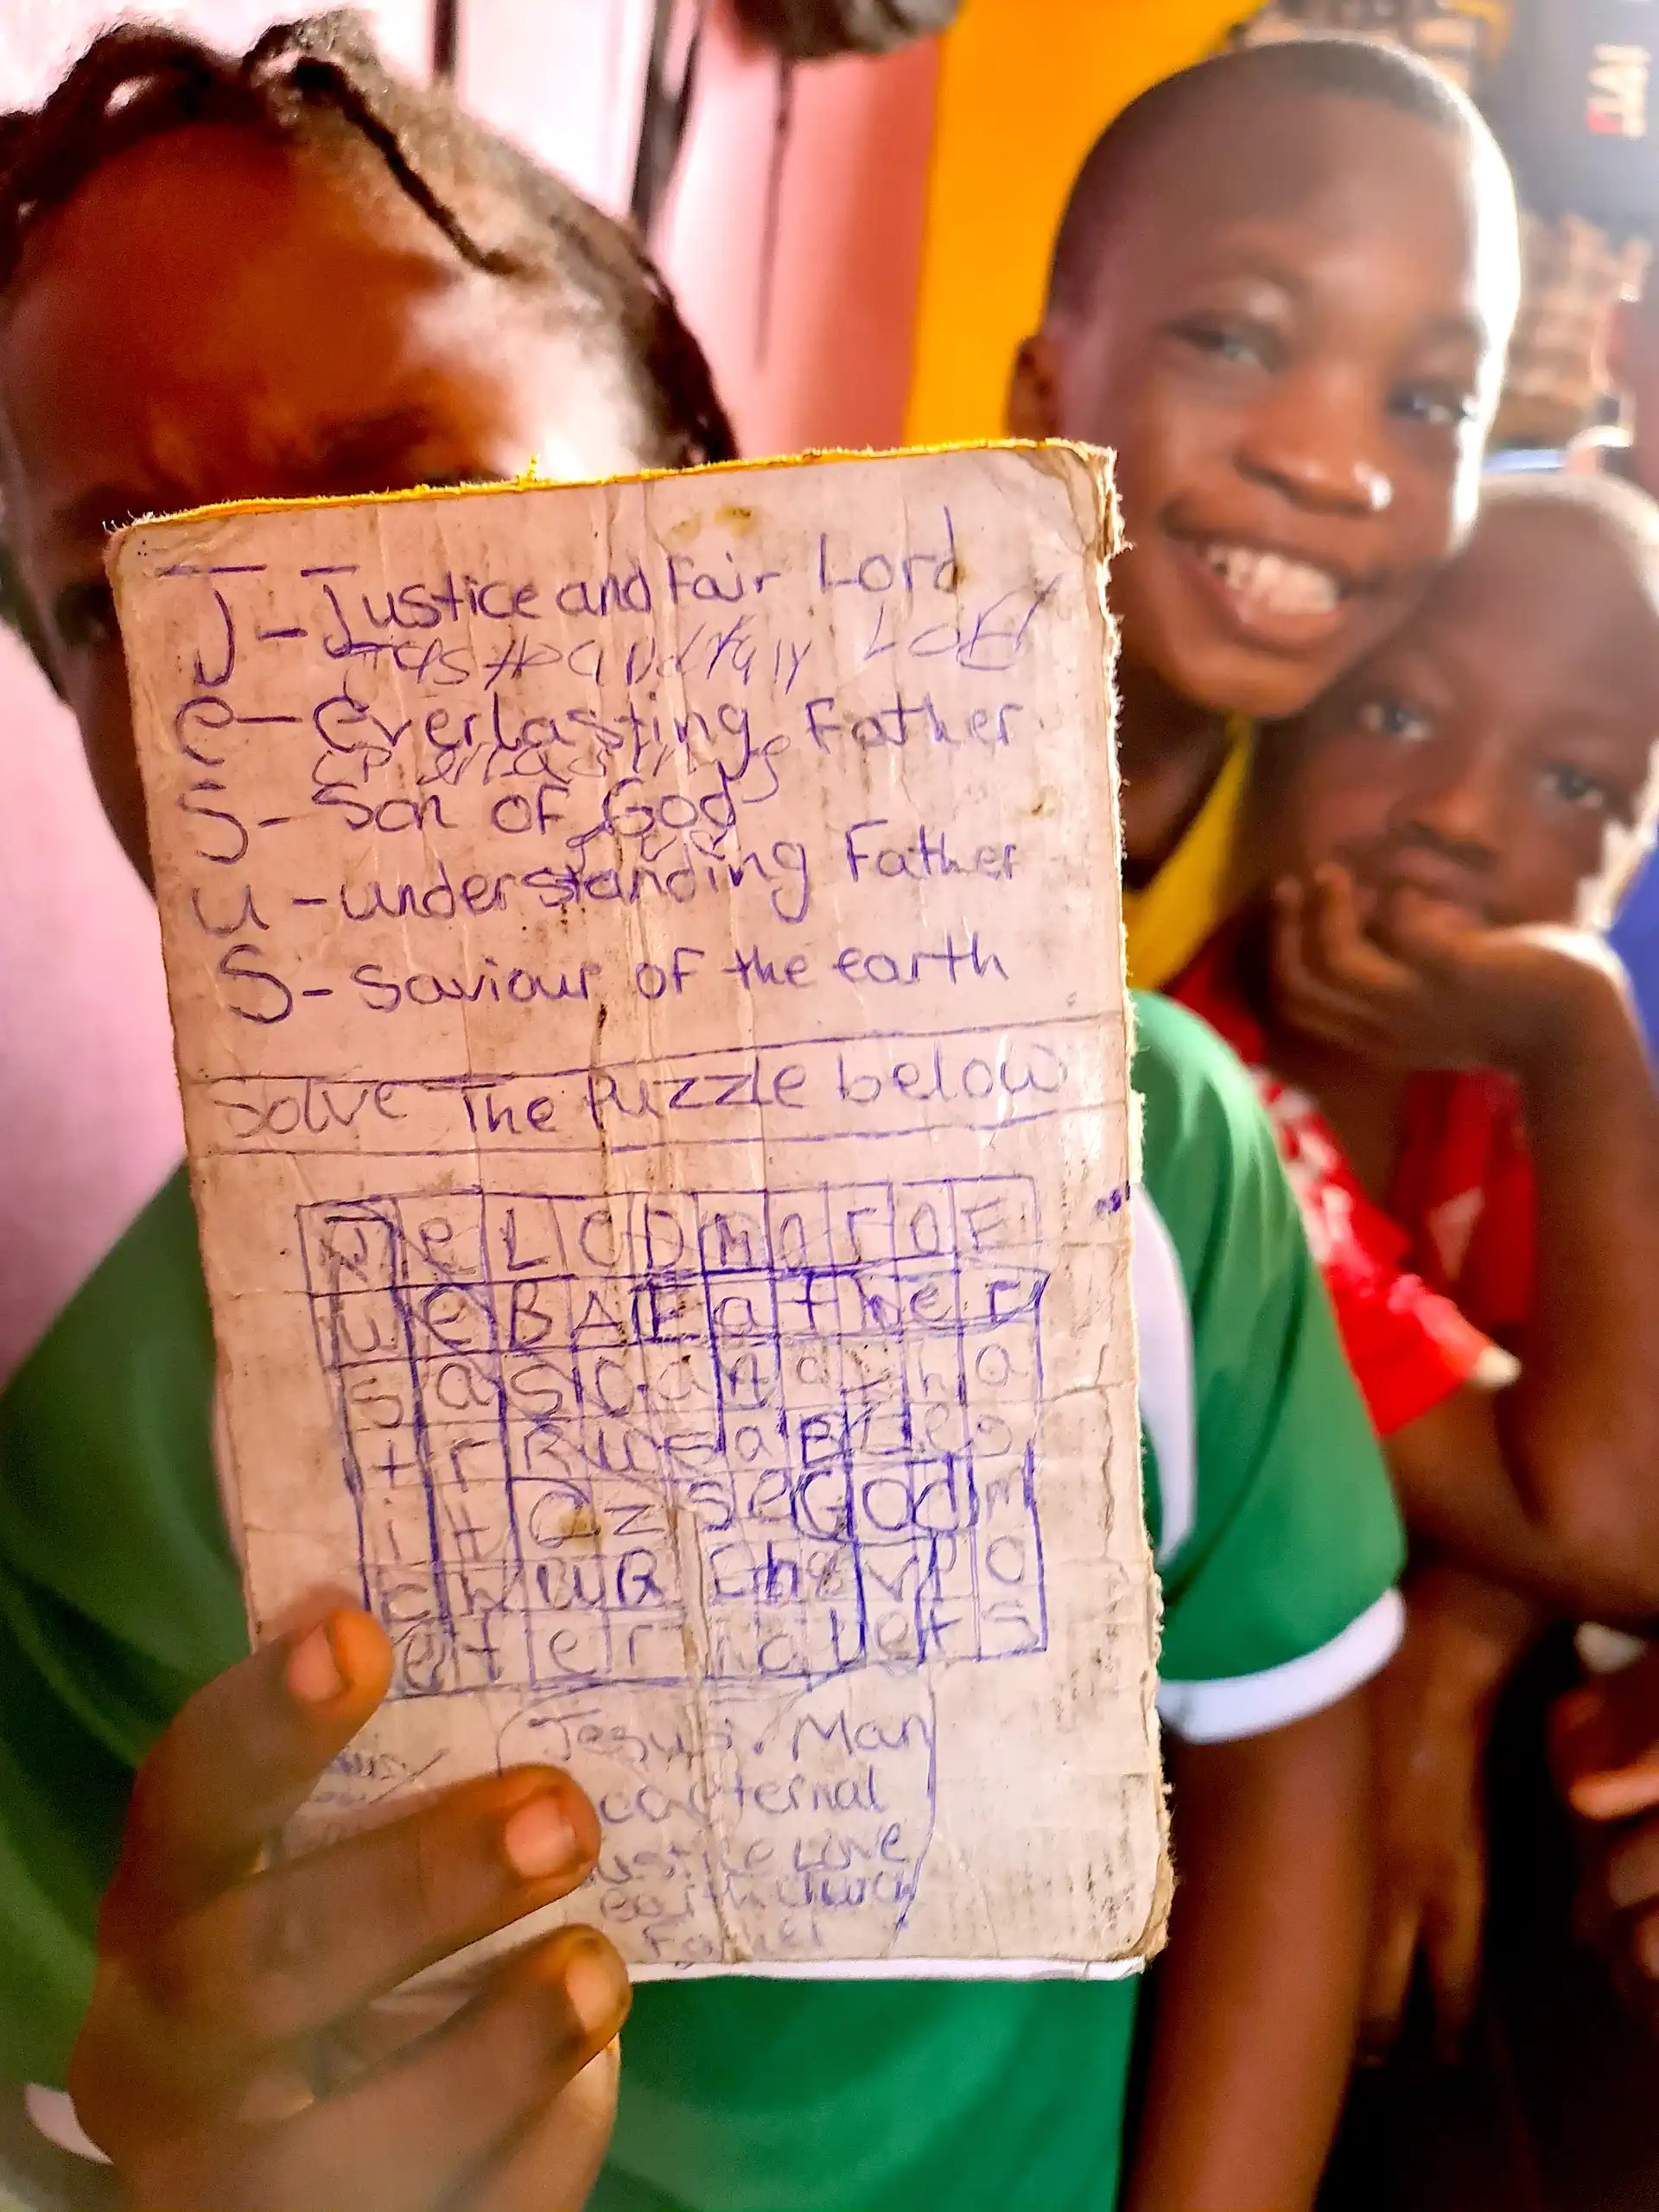 J - Justice and Fair Lord
e - everlasting Father
S - Son of God
u - understanding Father
S - Saviour of the earth
Solve The Puzzle below
J e L C D M o r o F
u e B A F a t h e r
s a S
t r R u s a B L e s
i t O z s e G o d m
c h W R C h V P o
e t e r n a l e t s
Jesus. Man
eternal
Justice Love
Earth
Father